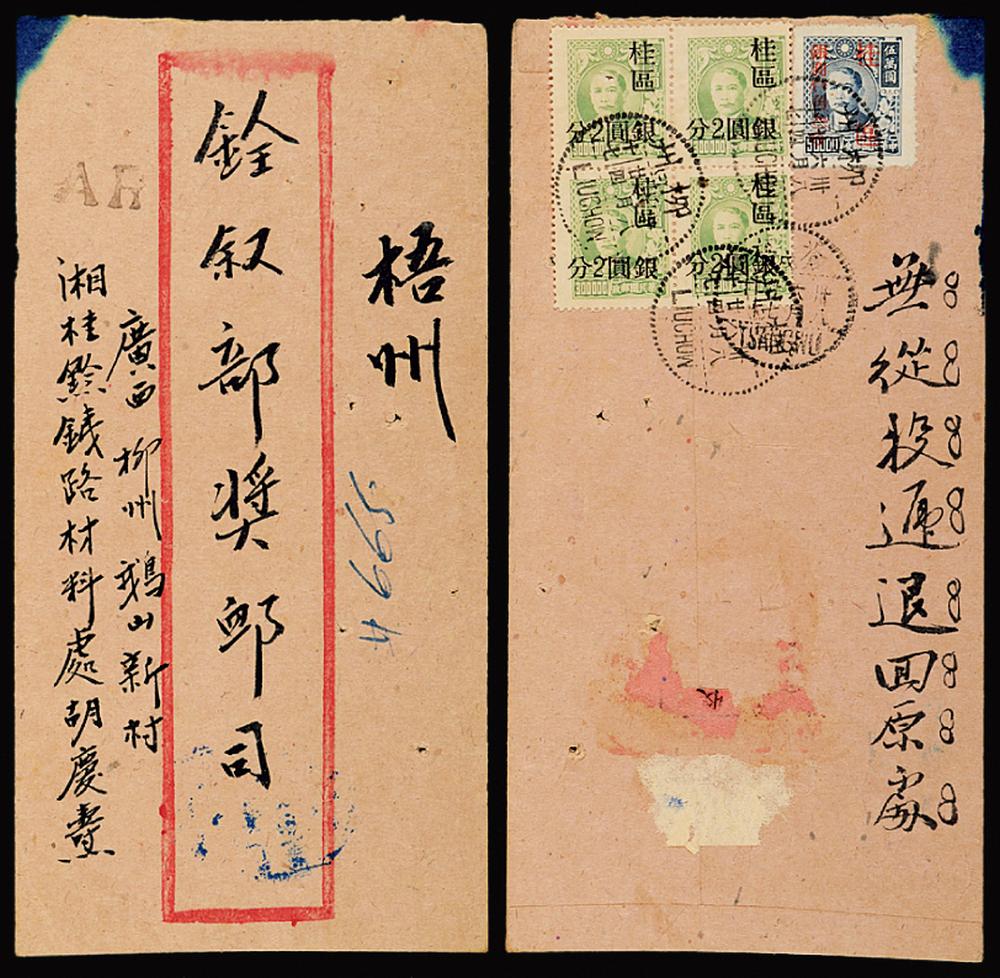 梧州
銓叙部奬邺司
廣西柳州鵝山新村
湘桂黔鐵路材料處胡慶燾
4665
AR
桂區
銀圓2分
300000
桂區
銀圓2分
桂區
銀圓2分
300000
桂區
銀圓2分
桂區
伍萬圓
50000
柳州
LIUCHOW
柳
柳州
LIUCHOW
TSANGWU
無從投遞退回原處
收